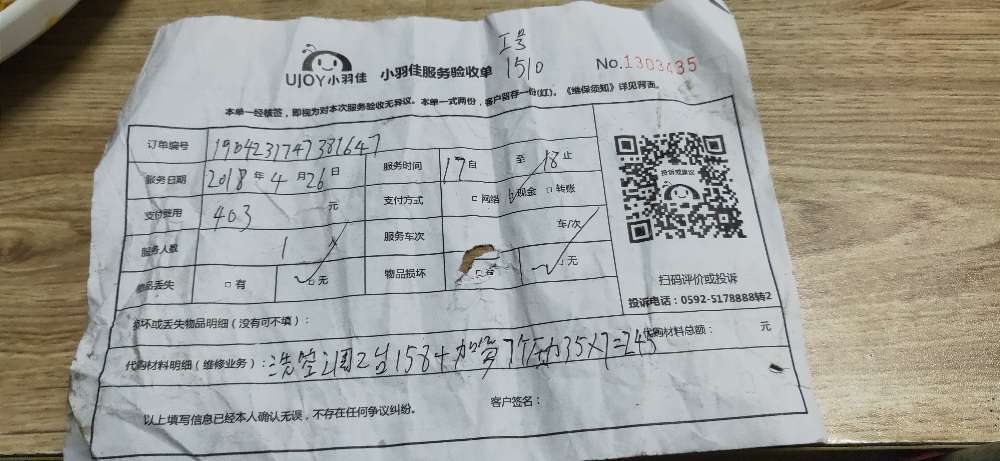 工号
1510
UJOY小羽佳 小羽佳服务验收单 No.1303435
本单一经核签，即视为对本次服务验收无异议。本单一式两份，客户留存一份(红)。《维保须知》详见背面。
订单编号 1904231747381647
服务日期 2018年4月26日 服务时间 17自 至 18止
支付费用 403 元 支付方式 □网络 现金 □转账
服务人数 1 人 服务车次 车/次
物品丢失 □有 □无 物品损坏 □有 □无
投诉或建议
扫码评价或投诉
投诉电话：0592-5178888转2
损坏或丢失物品明细（没有可不填）：
代购材料明细（维修业务）：洗空调2台158+加雪7个压力35×7=245 代购材料总额： 元
以上填写信息已经本人确认无误，不存在任何争议纠纷。 客户签名：